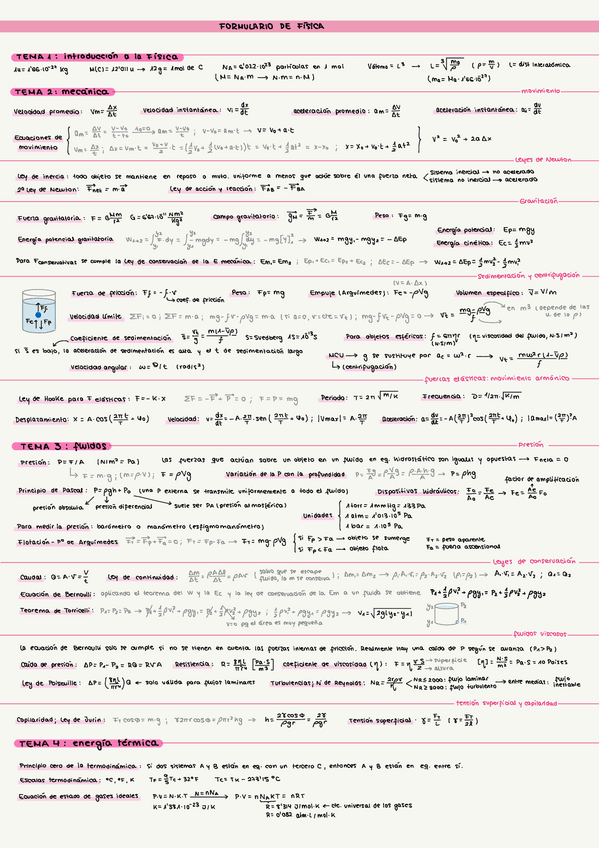 FORMULARIO DE FÍSICA
TEMA 1: introducción a la Física
1u = 1'66·10⁻²⁷ kg   M(C) = 12'011 u → 12g = 1mol de C   NA = 6'022·10²³ partículas en 1 mol   Vátomo = L³ → L = ∛(ma/ρ) (ρ = m/V) L = dist interatómica
(M = NA·m → N·m = n·M)
TEMA 2: mecánica
movimiento
Velocidad promedio: Vm = Δx/Δt   Velocidad instantánea: Vi = dx/dt   aceleración promedio: am = ΔV/Δt   aceleración instantánea: ai = dv/dt
Ecuaciones de movimiento
V = V₀ + a·t
x = x₀ + V₀·t + ½at²   V² = V₀² + 2aΔx
Leyes de Newton
Ley de inercia: todo objeto se mantiene en reposo o mvto. uniforme a menos que actúe sobre él una fuerza neta
Sistema inercial → no acelerado
sistema no inercial → acelerado
2ª Ley de Newton: Fneta = m·a   Ley de acción y reacción: FAB = -FBA
Gravitación
Fuerza gravitatoria: F = G Mm/r²   G = 6'67·10⁻¹¹ Nm²/kg²   Campo gravitatorio:   Peso: Fg = m·g
Energía potencial: Ep = mgy
Energía potencial gravitatoria   → W₁→₂ = mgy₁ - mgy₂ = -ΔEp   Energía cinética: Ec = ½mv²
Para Fconservativas se cumple la Ley de conservación de la E mecánica: Em₁ = Em₂ ; Ep₁ + Ec₁ = Ep₂ + Ec₂ ; ΔEc = -ΔEp → W₁→₂ = ΔEp = ½mv₂² - ½mv₁²
Sedimentación y centrifugación
Fuerza de fricción: Ff = -f·v   Peso: Fp = mg   Empuje (Arquímedes): Fe = -ρVg   Volumen específico: V̄ = V/m
coef. de fricción
Velocidad límite ΣF = 0 ; ΣF = m·a ; mg - fv - ρVg = m·a (si a = 0, v = cte = vt) ; mg - fvt - ρVg = 0 → Vt = (mg - ρVg)/f
Coeficiente de sedimentación:   S = Svedberg 1S = 10⁻¹³ s   Para objetos esféricos: f = 6πηr (η = viscosidad del fluido, N·S/m²)
si S es bajo, la aceleración de sedimentación es alta y el t de sedimentación largo
MCU → g se sustituye por ac = ω²·r → Vt = mω²r(1-V̄ρ)/f
(centrifugación)
Velocidad angular:
fuerzas elásticas: movimiento armónico
Ley de Hooke para F elásticas: F = -K·x   Periodo: T = 2π√(m/K)   Frecuencia: ν = 1/2π·√(K/m)
Desplazamiento: X = A·cos(2πt/T + φ₀)   Velocidad: v = dx/dt = -A·2π/T·sen(2πt/T + φ₀) ; |Vmax| = A·2π/T   Aceleración: a = dv/dt = -A(2π/T)²cos(2πt/T + φ₀) ; |amax| = (2π/T)²A
TEMA 3: fluidos
Presión
Presión: P = F/A (N/m² = Pa)   Las fuerzas que actúan sobre un objeto en un fluido en eq. hidrostático son iguales y opuestas → Fneta = 0
F = m·g ; (m = ρ·V) ; F = ρVg   Variación de la P con la profundidad   → P = ρhg
factor de amplificación
Principio de Pascal: P = ρgh + P₀ (una P externa se transmite uniformemente a todo el fluido)   Dispositivos hidráulicos:
presión absoluta   presión diferencial   suele ser Pa (presión atmosférica)
Unidades   1 torr = 1 mmHg = 133 Pa
1 atm = 1'013·10⁵ Pa
1 bar = 1·10⁵ Pa
Para medir la presión: barómetro o manómetro (esfigmomanómetro)
Flotación - Pº de Arquímedes   → FT = mg - ρVg   Si Fp > Fa → objeto se sumerge
Si Fp < Fa → objeto flota
FT = peso aparente
Fa = fuerza ascensional
Leyes de conservación
Caudal: Q = A·V = V/t   Ley de continuidad:   → A₁·V₁ = A₂·V₂ ; Q₁ = Q₂
Ecuación de Bernoulli: aplicando el teorema del W y la Ec y la ley de conservación de la Em a un fluido se obtiene   P₁ + ½ρv₁² + ρgy₁ = P₂ + ½ρv₂² + ρgy₂
Teorema de Torricelli:   → V₂ = √(2g(y₂ - y₁))
v ≈ 0 pq el área es muy pequeña
fluidos viscosos
La ecuación de Bernoulli solo se cumple si no se tienen en cuenta las fuerzas internas de fricción. Realmente hay una caída de P según se avanza (P₁ > P₂)
Caída de presión: ΔP = P₁ - P₂ = RQ = RVA   Resistencia: R = 8ηL/πr⁴ [Pa·s/m³]   coeficiente de viscosidad (η):   superficie
altura   [η] = N·s/m² = Pa·s = 10 Poises
Ley de Poiseuille: ΔP = (8ηL/πr⁴)Q ← solo válida para flujos laminares   Turbulencias; Nº de Reynolds:   NR ≤ 2000: flujo laminar
NR ≥ 3000: flujo turbulento → entre medias: flujo inestable
tensión superficial y capilaridad
Capilaridad; Ley de Jurin: FT cosθ = m·g ; γ2πr cosθ = ρπr²hg → h = 2γcosθ/ρgr = 2γ/ρgr   Tensión superficial: γ = FT/L (γ = FT/2L)
TEMA 4: energía térmica
Principio cero de la termodinámica: si dos sistemas A y B están en eq. con un tercero C, entonces A y B están en eq. entre sí.
Escalas termodinámica: ºC, ºF, K   TF = 9/5 Tc + 32ºF   Tc = TK - 273'15 ºC
Ecuación de estado de gases ideales   P·V = N·K·T   N = nNA   P·V = nNAKT = nRT
K = 1'381·10⁻²³ J/K   R = 8'314 J/mol·K ← cte. universal de los gases
R = 0'082 atm·L/mol·K